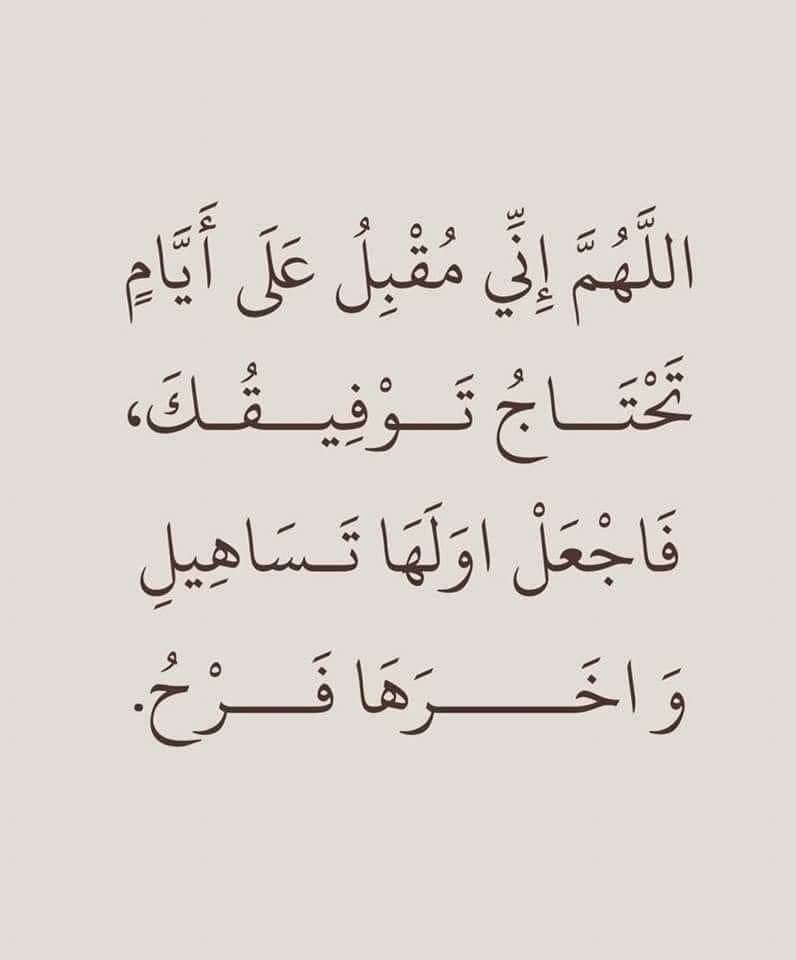 اللَّهُمَّ إِنِّي مُقْبِلُ عَلَى أَيَّامٍ
تَحْتَـــاجُ تَـــوْفِيـــقُـــكَ،
فَاجْعَلْ اوَلَهَا تَـــسَاهِيلِ
وَ اخَـــــرَهَا فَـــــرْحُ.